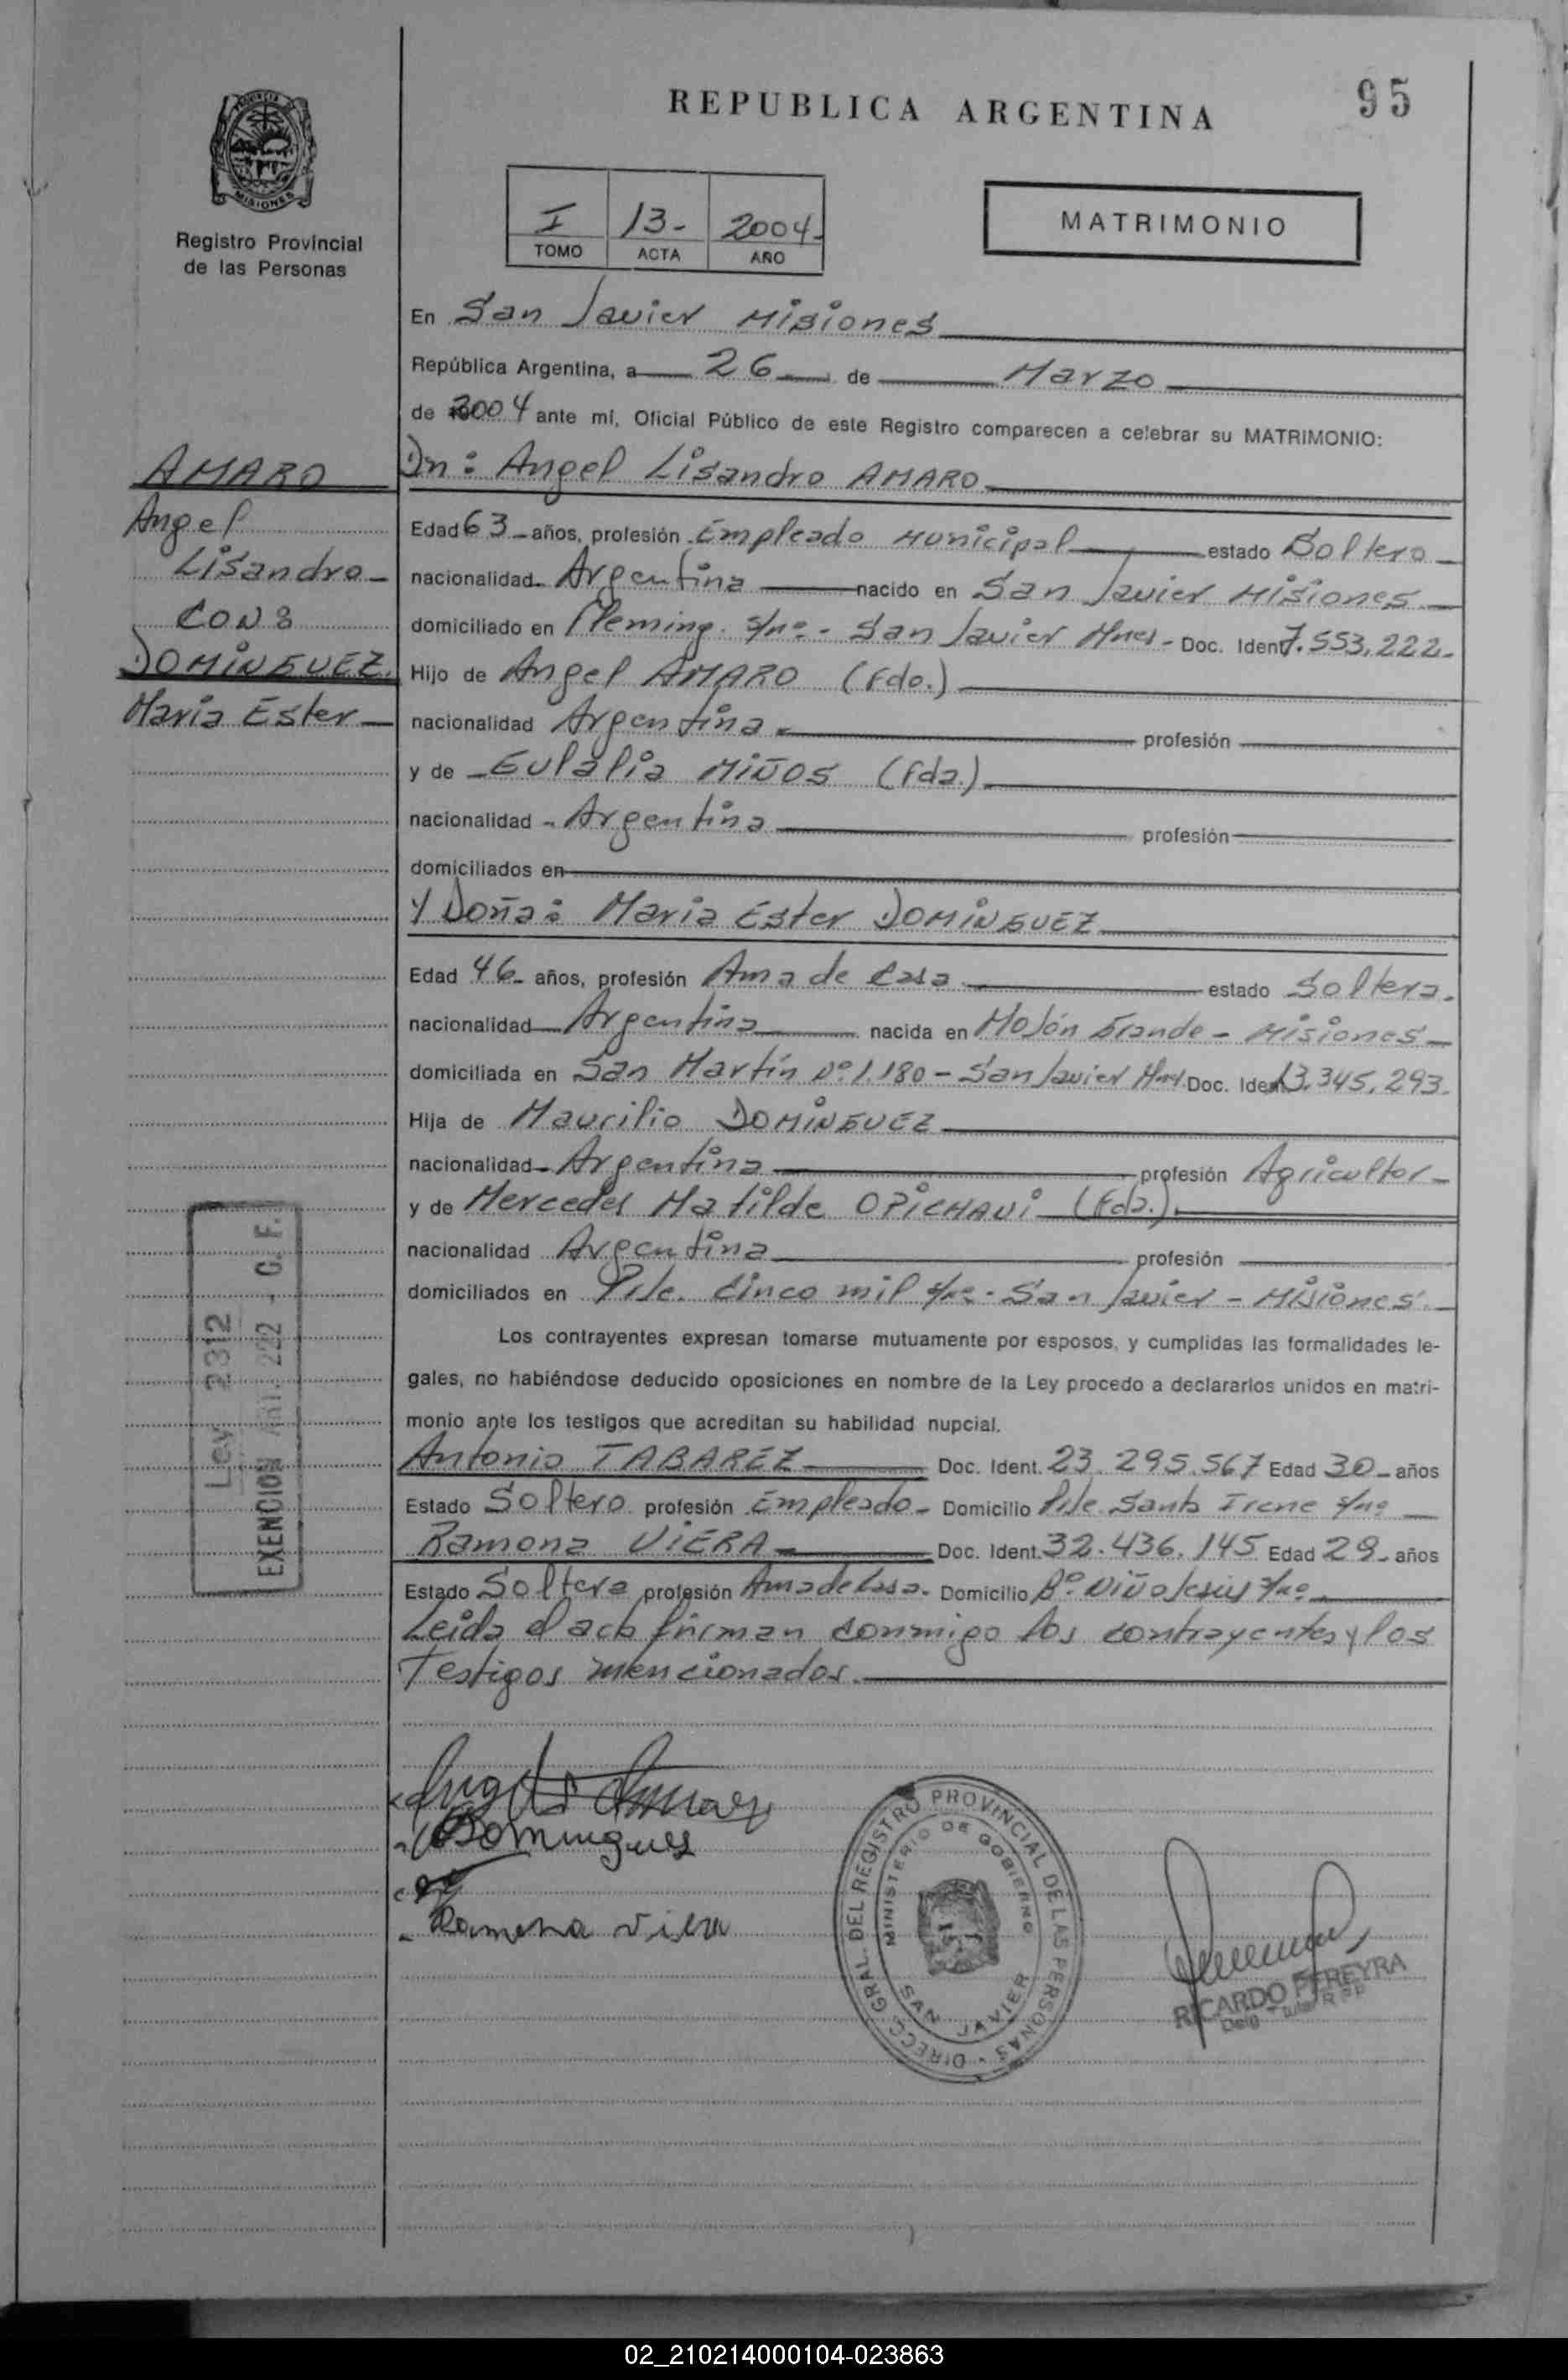 REPUBLICA ARGENTINA
95
PROVINCIA DE
MISIONES
Registro Provincial
de las Personas
I 13- 2004-
TOMO ACTA AÑO
MATRIMONIO
En San Javier Misiones
República Argentina, a 26 de Marzo
de 2004 ante mi, Oficial Público de este Registro comparecen a celebrar su MATRIMONIO:
AMARO
Angel
Lisandro-
CON:
DOMINGUEZ.
Maria Ester
Dn: Angel Lisandro AMARO
Edad 63 años, profesión Empleado Municipal estado Soltero
nacionalidad Argentina nacido en San Javier Misiones
domiciliado en Fleming. s/nº - San Javier Mnes - Doc. Ident. 7.553.222-
Hijo de Angel AMARO (Fdo.)
nacionalidad Argentina profesión
y de Eulalia MIÑOS (Fda.)
nacionalidad - Argentina profesión
domiciliados en
Y Doña: Maria Ester DOMINGUEZ
Edad 46- años, profesión Ama de Casa estado Soltera.
nacionalidad Argentina nacida en Mojón Grande - Misiones
domiciliada en San Martín Nº 1.180 - San Javier Mnes. Doc. Ident. 13.345.293.
Hija de Maurilio DOMINGUEZ
nacionalidad Argentina profesión Agricultor-
y de Mercedes Matilde OPICHANI (Fda.)
nacionalidad Argentina profesión
domiciliados en Pje. Cinco mil s/nº - San Javier - Misiones.
Los contrayentes expresan tomarse mutuamente por esposos, y cumplidas las formalidades le-
gales, no habiéndose deducido oposiciones en nombre de la Ley procedo a declararlos unidos en matri-
monio ante los testigos que acreditan su habilidad nupcial.
Antonio TABAREZ Doc. Ident. 23.295.567 Edad 30- años
Estado Soltero profesión Empleado- Domicilio Pje. Santa Irene s/nº
Ramona VIERA Doc. Ident. 32.436.145 Edad 29- años
Estado Soltera profesión Ama de Casa. Domicilio Bº. Niño Jesús s/nº
Leida el acta firman conmigo los contrayentes y los
Testigos mencionados.
Ley 2312
EXENCION ART. 222 - C. F.
Domingues
Ramona viera
DIRECC. GRAL. DEL REGISTRO PROVINCIAL DE LAS PERSONAS
MINISTERIO DE GOBIERNO
SAN JAVIER
RICARDO PEREYRA
02_210214000104-023863